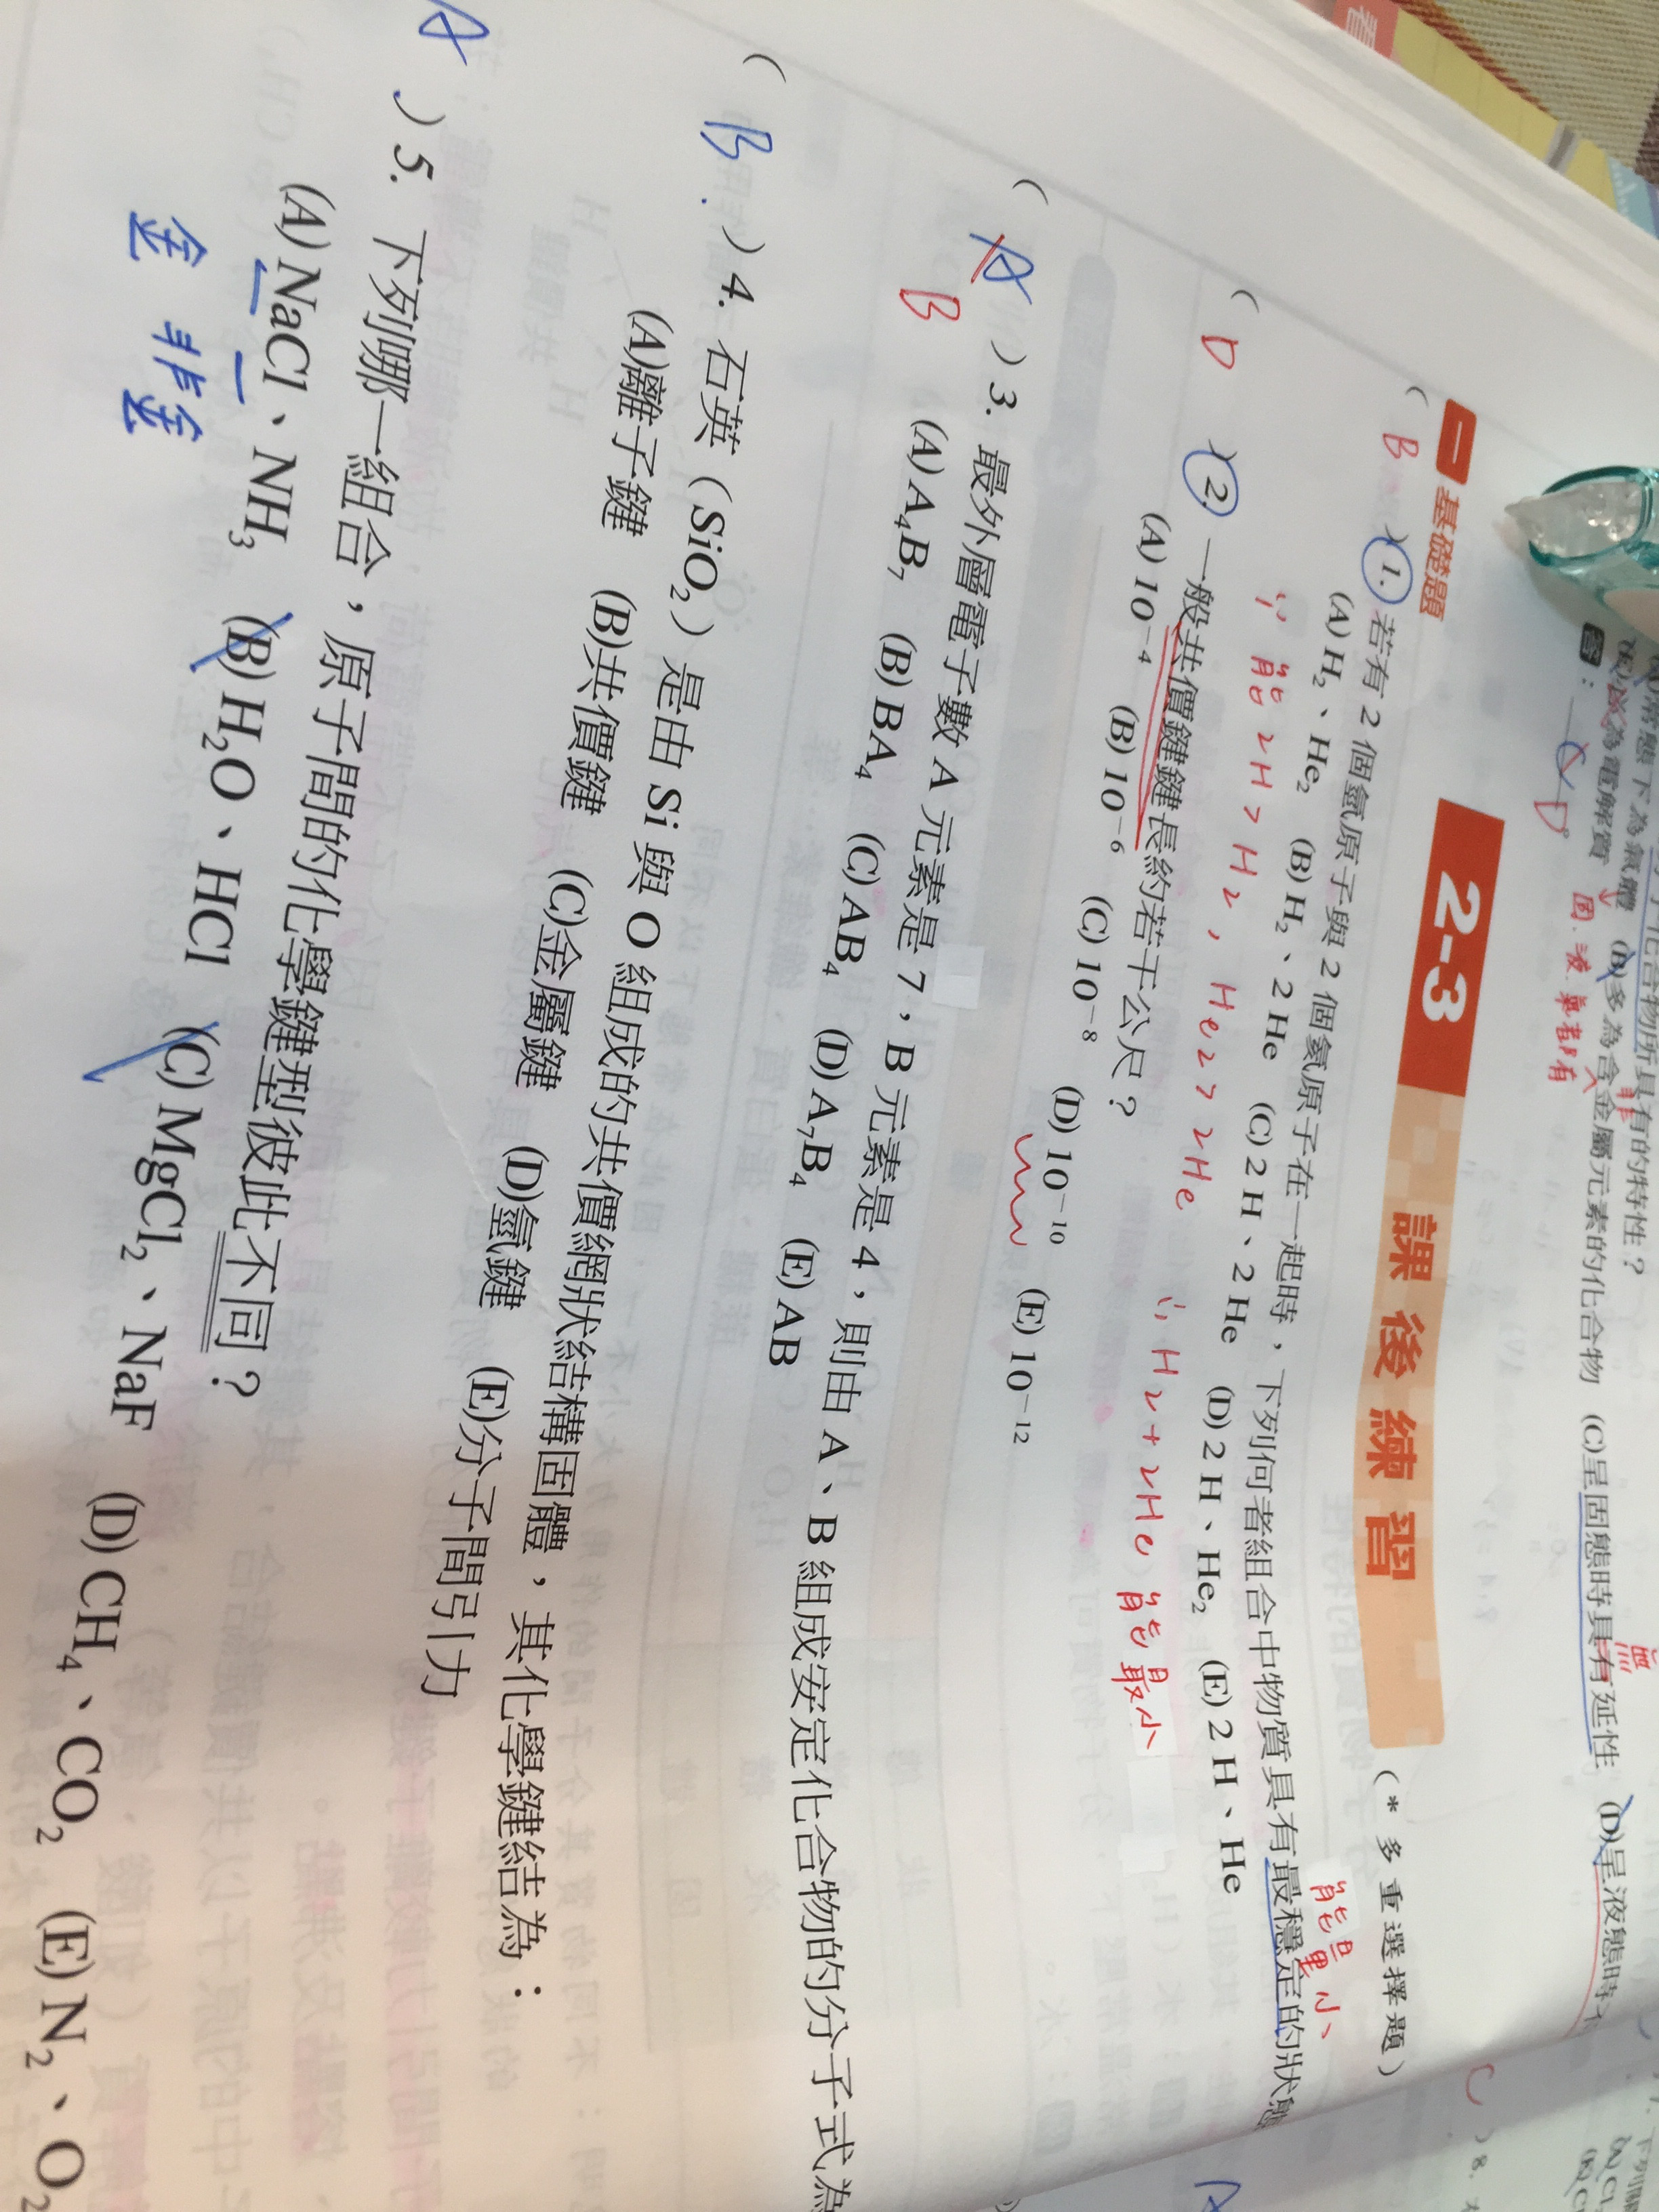 子化合物所具有的特性？
常態下為氣體 (B)多為含金屬元素的化合物 (C)呈固態時具有延性 (D)呈液態時
非
無
為電解質
固.液.氣都有
答：
D
2-3 課後練習 (* 多重選擇題)
一 基礎題
能量小、
( B )1. 若有 2 個氫原子與 2 個氦原子在一起時，下列何者組合中物質具有最穩定的狀態
(A) H₂、He₂ (B) H₂、2 He (C) 2 H、2 He (D) 2 H、He₂ (E) 2 H、He
∵ 能 2H > H₂ , He₂ > 2He ∴ H₂ + 2He 能最小
( D )2. 一般共價鍵鍵長約若干公尺？
(A) 10⁻⁴ (B) 10⁻⁶ (C) 10⁻⁸ (D) 10⁻¹⁰ (E) 10⁻¹²
( A )3. 最外層電子數 A 元素是 7，B 元素是 4，則由 A、B 組成安定化合物的分子式為
B
(A) A₄B₇ (B) BA₄ (C) AB₄ (D) A₇B₄ (E) AB
( B. )4. 石英（SiO₂）是由 Si 與 O 組成的共價網狀結構固體，其化學鍵結為：
(A)離子鍵 (B)共價鍵 (C)金屬鍵 (D)氫鍵 (E)分子間引力
A )5. 下列哪一組合，原子間的化學鍵型彼此不同？
(A) NaCl、NH₃ (B) H₂O、HCl (C) MgCl₂、NaF (D) CH₄、CO₂ (E) N₂、O₂
金 非金